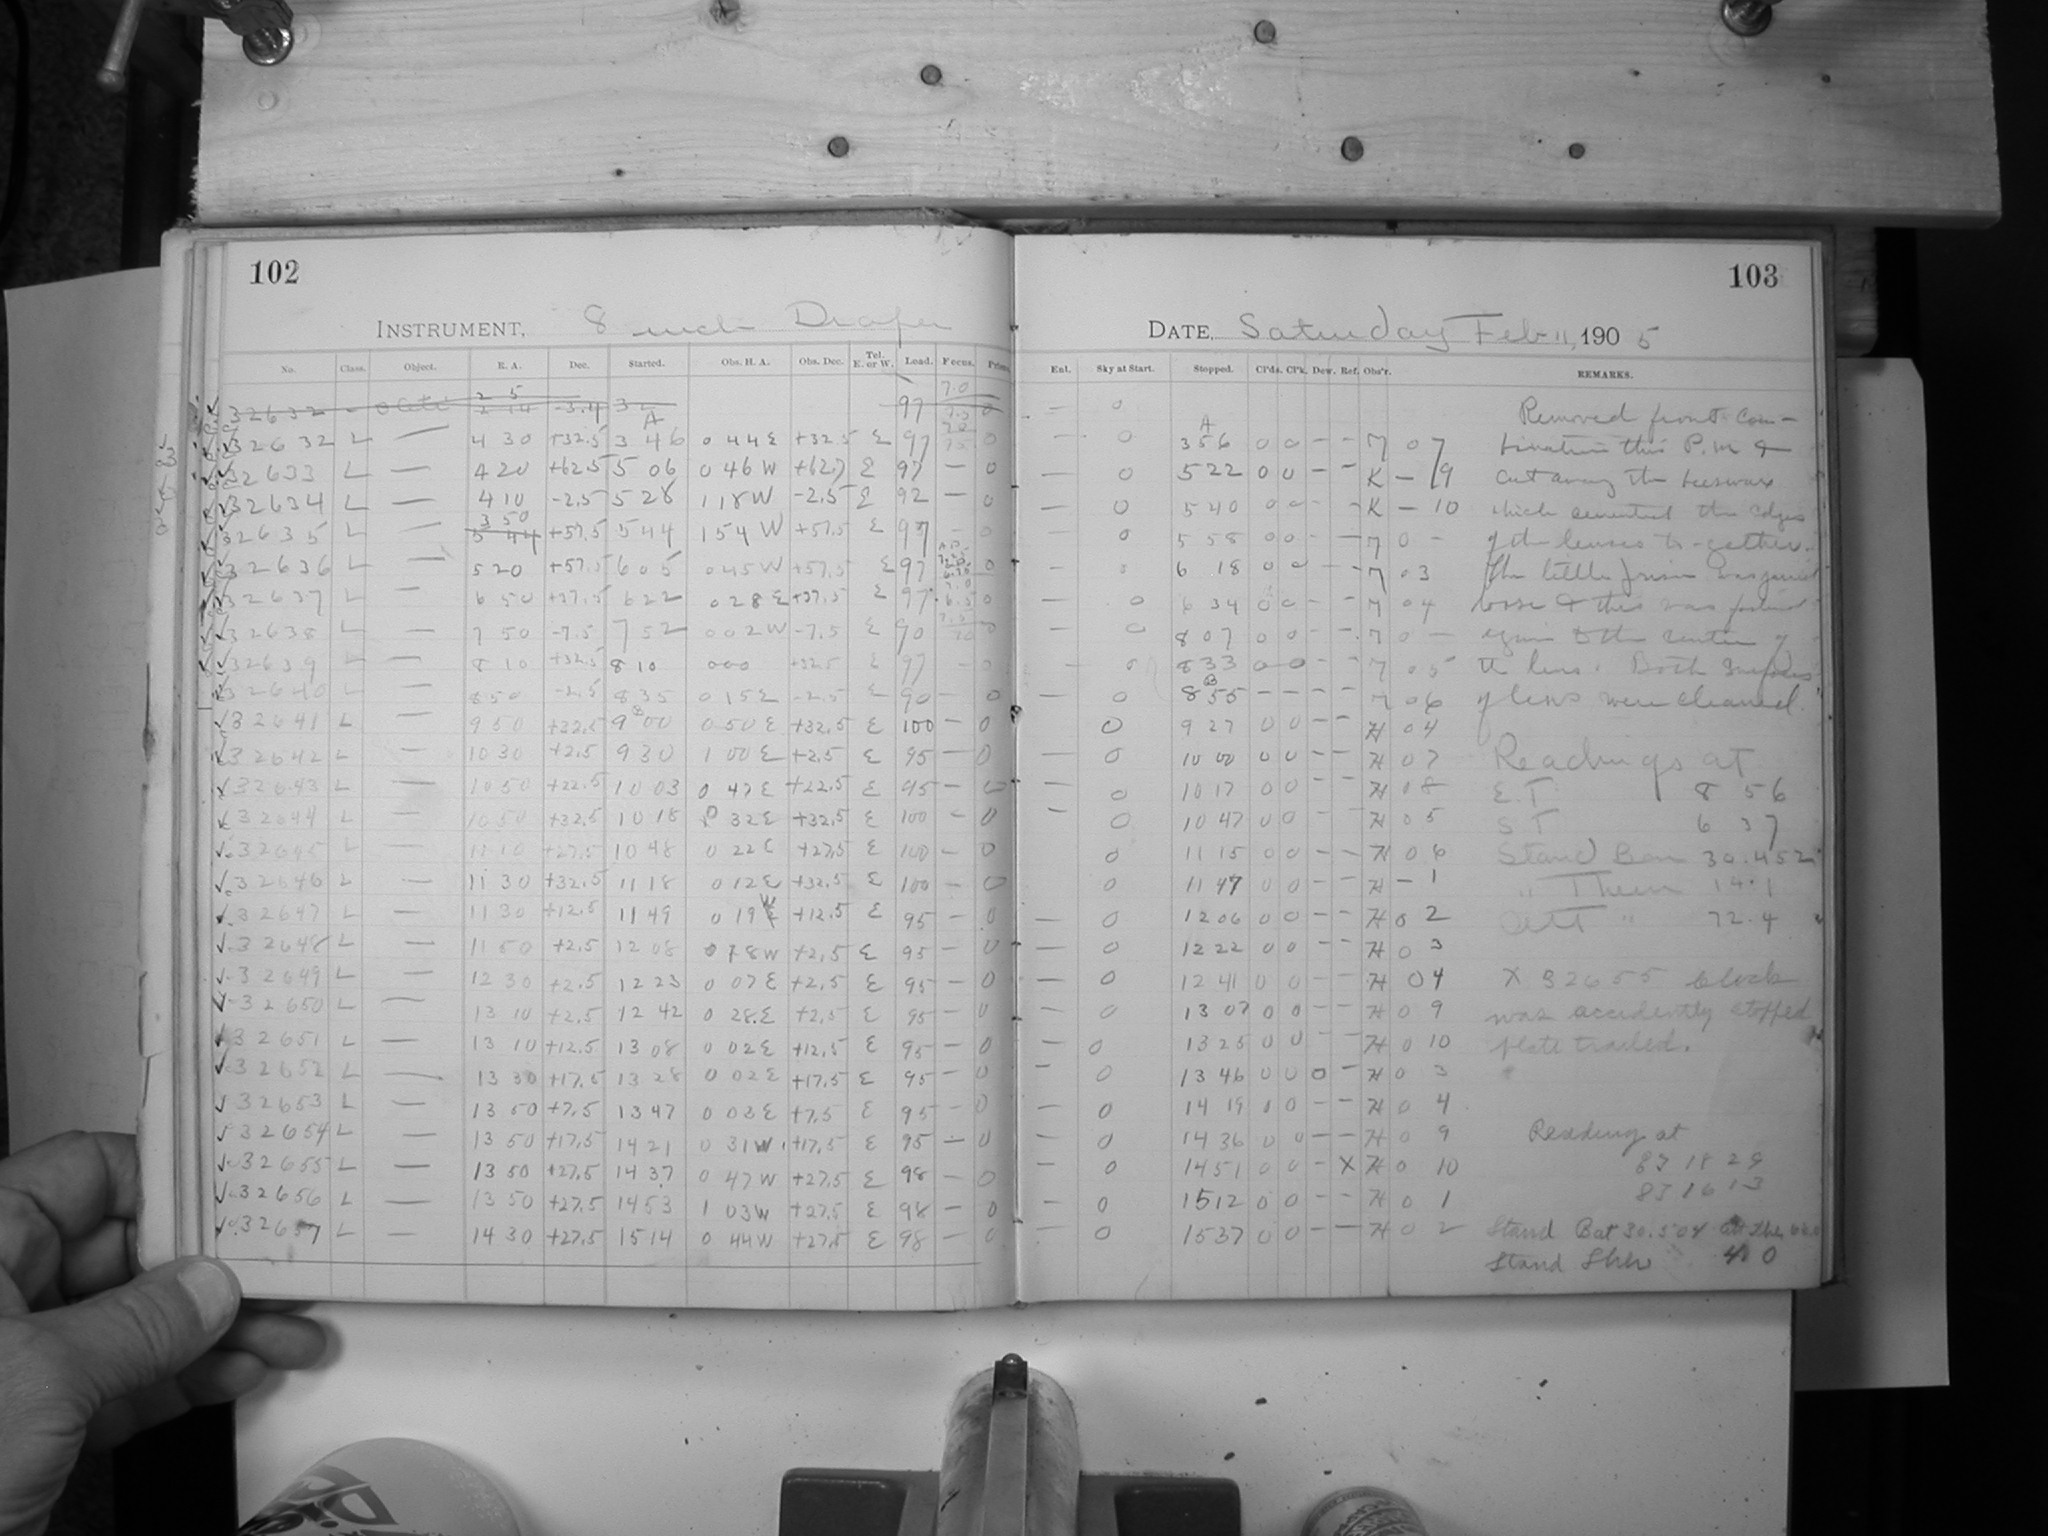 102
INSTRUMENT, 8 inch Draper
No. Class. Object. R. A. Dec. Started. Obs. H. A. Obs. Dec. Tel. E. or W. Load. Focus. Prism.
32632 97 0
32632 L — 4 30 +32.5 3 46 0 44 E +32.5 E 97 0
32633 L — 4 20 +62.5 5 06 0 46 W +62.7 E 97 — 0
32634 L — 4 10 -2.5 5 28 1 18 W -2.5 E 92 — 0
32635 L — 3 50 +57.5 5 44 1 54 W +57.5 E 97 — 0
32636 L — 5 20 +57.5 6 05 0 45 W +57.5 E 97 0
32637 L — 6 50 +37.5 6 22 0 28 E +37.5 E 97 0
32638 L — 7 50 -7.5 7 52 0 02 W -7.5 E 90 0
32639 L — 8 10 +32.5 8 10 0 00 +32.5 E 97 — 0
32640 L — 8 50 -2.5 8 35 0 15 E -2.5 E 90 — 0
32641 L — 9 50 +32.5 9 00 0 50 E +32.5 E 100 — 0
32642 L — 10 30 +2.5 9 30 1 00 E +2.5 E 95 — 0
32643 L — 10 50 +22.5 10 03 0 47 E +22.5 E 95 — 0
32644 L — 10 50 +32.5 10 18 0 32 E +32.5 E 100 — 0
32645 L — 11 10 +27.5 10 48 0 22 E +27.5 E 100 — 0
32646 L — 11 30 +32.5 11 18 0 12 E +32.5 E 100 — 0
32647 L — 11 30 +12.5 11 49 0 19 W +12.5 E 95 — 0
32648 L — 11 50 +2.5 12 08 0 18 W +2.5 E 95 — 0
32649 L — 12 30 +2.5 12 23 0 07 E +2.5 E 95 — 0
32650 L — 13 10 +2.5 12 42 0 28 E +2.5 E 95 — 0
32651 L — 13 10 +12.5 13 08 0 02 E +12.5 E 95 — 0
32652 L — 13 30 +17.5 13 28 0 02 E +17.5 E 95 — 0
32653 L — 13 50 +7.5 13 47 0 03 E +7.5 E 95 — 0
32654 L — 13 50 +17.5 14 21 0 31 W +17.5 E 95 — 0
32655 L — 13 50 +27.5 14 37 0 47 W +27.5 E 98 — 0
32656 L — 13 50 +27.5 14 53 1 03 W +27.5 E 98 — 0
32657 L — 14 30 +27.5 15 14 0 44 W +27.5 E 98 — 0
103
DATE, Saturday Feb 11, 1905
Ent. Sky at Start. Stopped. Cl'ds. Cl'k. Dew. Ref. Obs'r. REMARKS.
— 0 Removed front com-
— 0 3 56 0 0 — — 7 0 7 bination this P.M &
— 0 5 22 0 0 — — K — 9 cut away the beeswax
— 0 5 40 0 0 — — K — 10 which cemented the edges
— 0 5 58 0 0 — — 7 0 — of the lenses to-gether.
0 6 18 0 0 — — 7 0 3 The little prism was
— 0 6 34 0 0 — — 7 0 4 loose & this was
— 0 8 07 0 0 — — 7 0 — again to the center of
— 0 8 33 0 0 — — 7 0 5 the lens. Both surfaces
— 0 8 55 — — — — 7 0 6 of lens were cleaned.
— 0 9 27 0 0 — — H 0 4
— 0 10 00 0 0 — — H 0 7 Readings at
— 0 10 17 0 0 — — H 0 8 E.T. 8 56
— 0 10 47 0 0 — — H 0 5 S T 6 37
0 11 15 0 0 — — H 0 6 Stand Bar 30.452
0 11 47 0 0 — — H — 1 " Them 14.1
— 0 12 06 0 0 — — H 0 2 Att " 72.4
— 0 12 22 0 0 — — H 0 3
— 0 12 41 0 0 — — H 0 4 X 32655 clock
— 0 13 07 0 0 — — H 0 9 was accidently stopped
— 0 13 25 0 0 — — H 0 10 plate trailed.
— 0 13 46 0 0 0 — H 0 3
— 0 14 19 0 0 — — H 0 4
— 0 14 36 0 0 — — H 0 9 Reading at
— 0 14 51 0 0 — X H 0 10
— 0 15 12 0 0 — — H 0 1
— 0 15 37 0 0 — — H 0 2 Stand Bar 30.504 Att Ther
Stand Ther